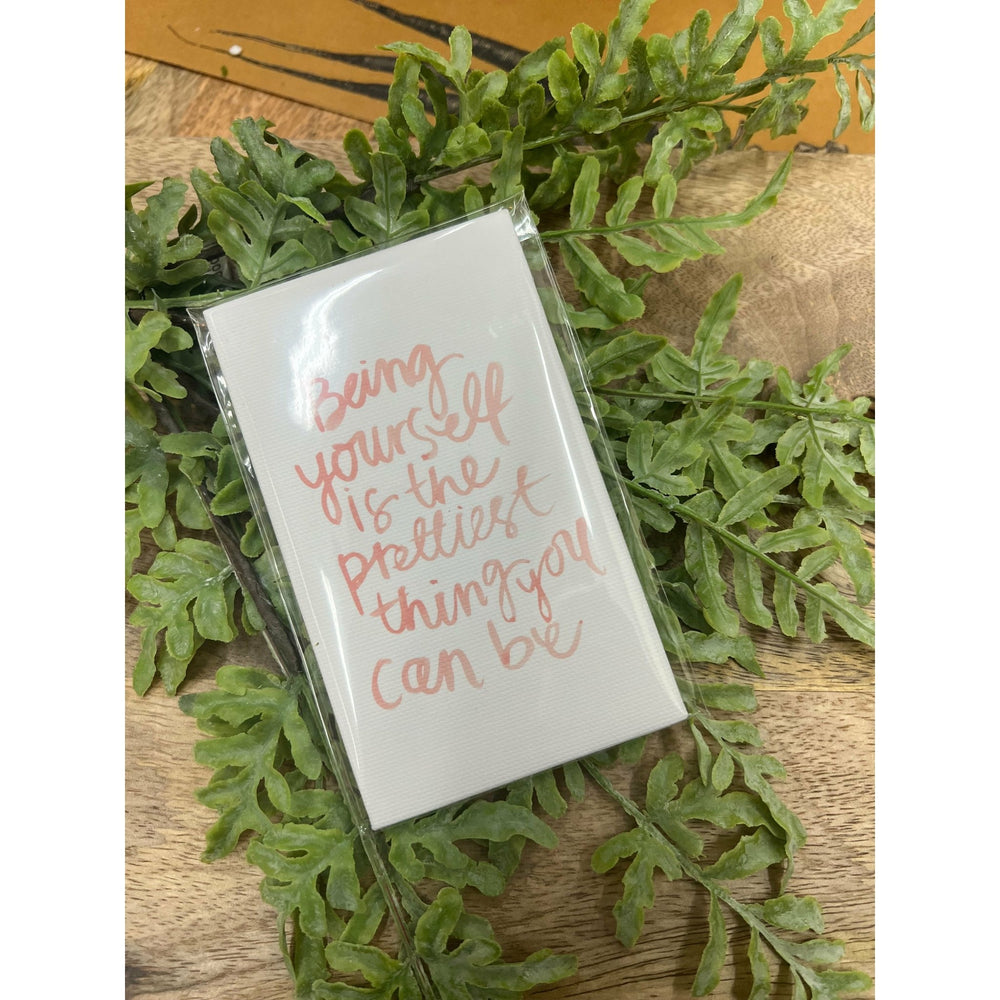 Being
yourself
is the
prettiest
thing you
can be